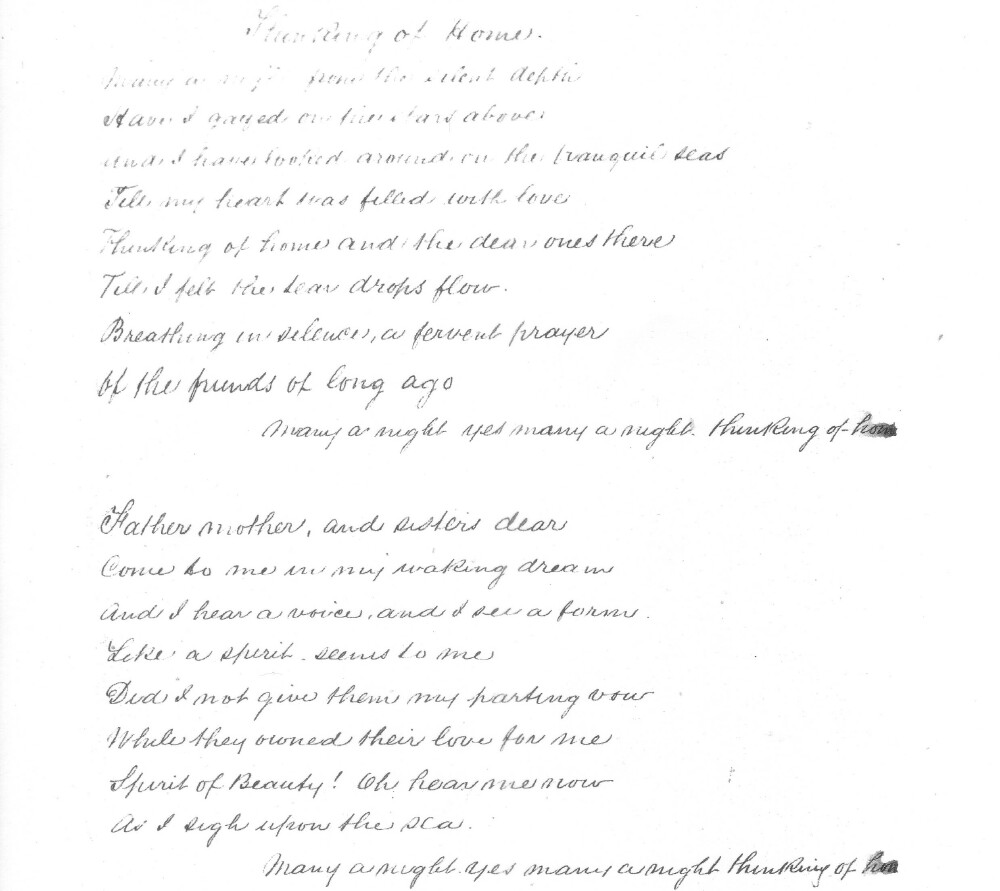 Thinking of Home.
Many a night from the silent depth
Have I gazed on the stars above
And I have looked around on the tranquil seas
Till my heart was filled with love
Thinking of home and the dear ones there
Till I felt the tear drops flow.
Breathing in silence, a fervent prayer
Of the friends of long ago
Many a night yes many a night. thinking of
Father mother, and sisters dear
Come to me in my waking dream
And I hear a voice, and I see a form.
Like a spirit seems to me
Did I not give them my parting vow
While they owned their love for me
Spirit of Beauty! Oh hear me now
As I sigh upon the sea.
Many a night. yes many a night thinking of